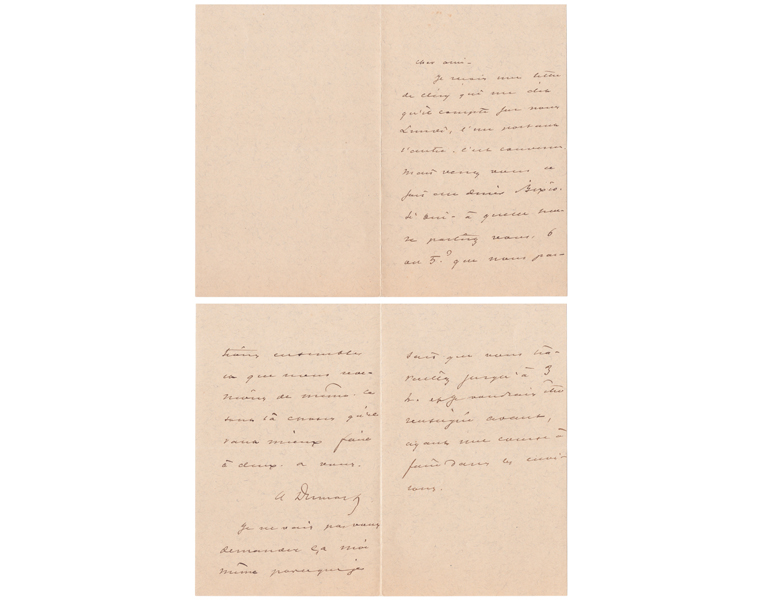 Cher ami.
Je reçois une lettre
de Cléry qui me dit
qu'il compte sur nous
Lundi, l'un portant
l'autre. l'un
mais venez vous
Bixio.
Si oui. à quelle heure
partez vous. 6
ou 5. ? que nous par-
tions ensemble
et que nous reve-
nions de même. Ce
sont là choses qu'il
vaut mieux faire
à deux. à vous.
A Dumas f
Je ne vais pas vous
demander ça moi
même parce que je
sais que vous tra-
vaillez jusqu'à 3
h. et je voudrais être
renseigné avant,
ayant une course à
faire dans les envi-
rons.